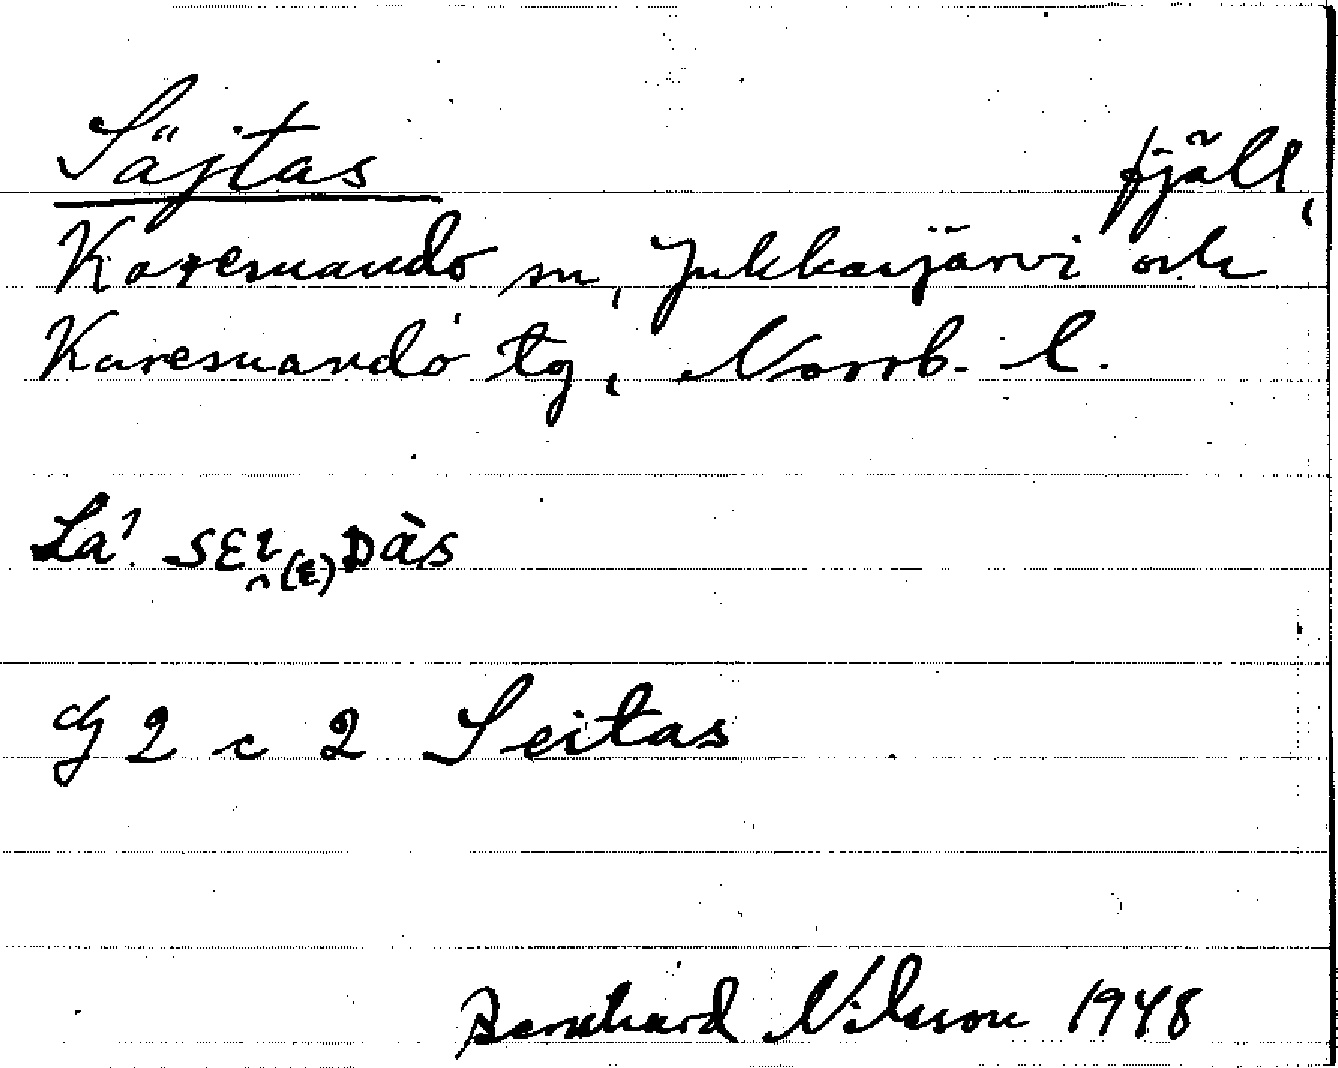 Säjtas fjäll,
Karesuando sn, Jukkasjärvi och
Karesuando tg, Norrb. l.
La? SEI(E)DÀS
G 2 c 2 Seitas
Bernhard Nilsson 1948